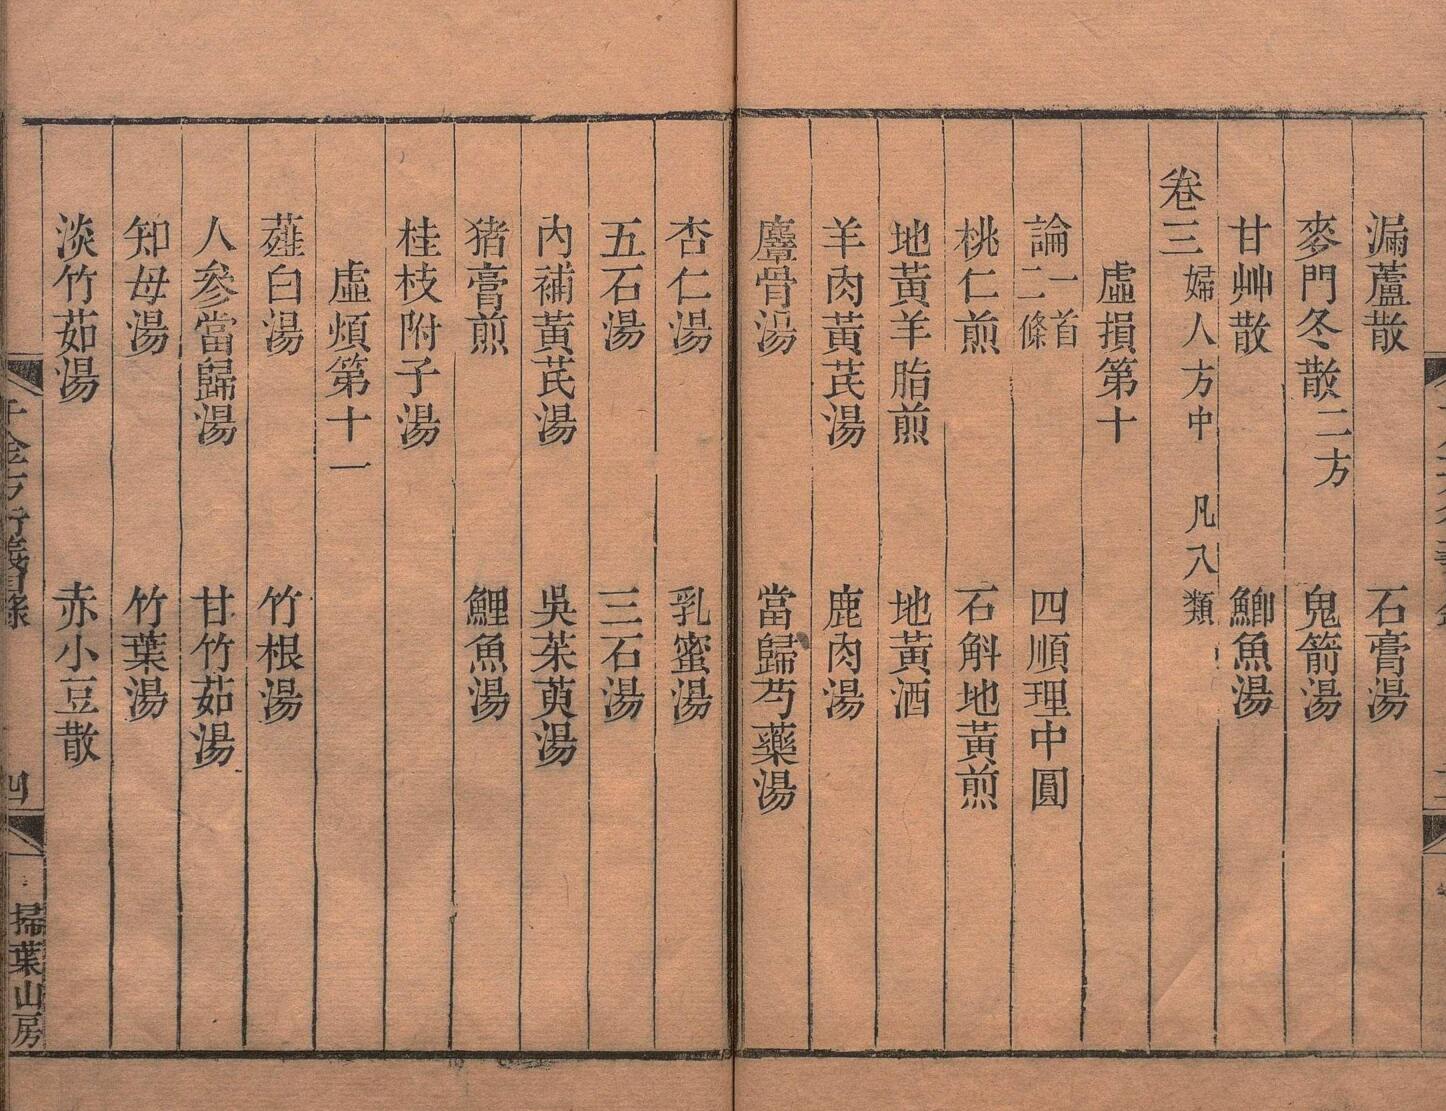 漏蘆散 石膏湯
麥門冬散二方 鬼箭湯
甘艸散 鯽魚湯
卷三 婦人方中 凡八類
虛損第十
論一首二條 四順理中圓
桃仁煎 石斛地黃煎
地黃羊脂煎 地黃酒
羊肉黃芪湯 鹿肉湯
麞骨湯 當歸芍藥湯
杏仁湯 乳蜜湯
五石湯 三石湯
內補黃芪湯 吳茱萸湯
猪膏煎 鯉魚湯
桂枝附子湯
虛煩第十一
薤白湯 竹根湯
人參當歸湯 甘竹茹湯
知母湯 竹葉湯
淡竹茹湯 赤小豆散
千金方衍義目錄 四 掃葉山房